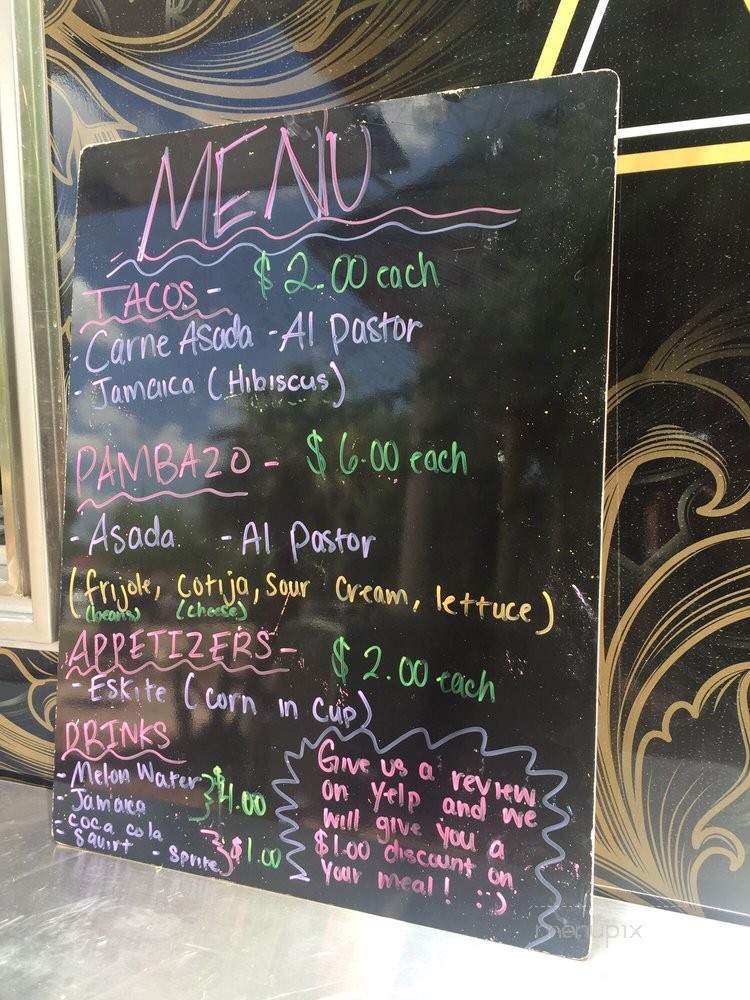 MENU
TACOS - $2.00 each
- Carne Asada - Al Pastor
- Jamaica (Hibiscus)
PAMBAZO - $6.00 each
- Asada - Al Pastor
(frijole, cotija, sour cream, lettuce)
(beans) (cheese)
APPETIZERS - $2.00 each
- Eskite (corn in cup)
DRINKS
- Melon Water
- Jamaica
$4.00
- coca cola
- Squirt - Sprite
$1.00
Give us a review
on yelp and we
will give you a
$1.00 discount on
your meal! :)
menupix